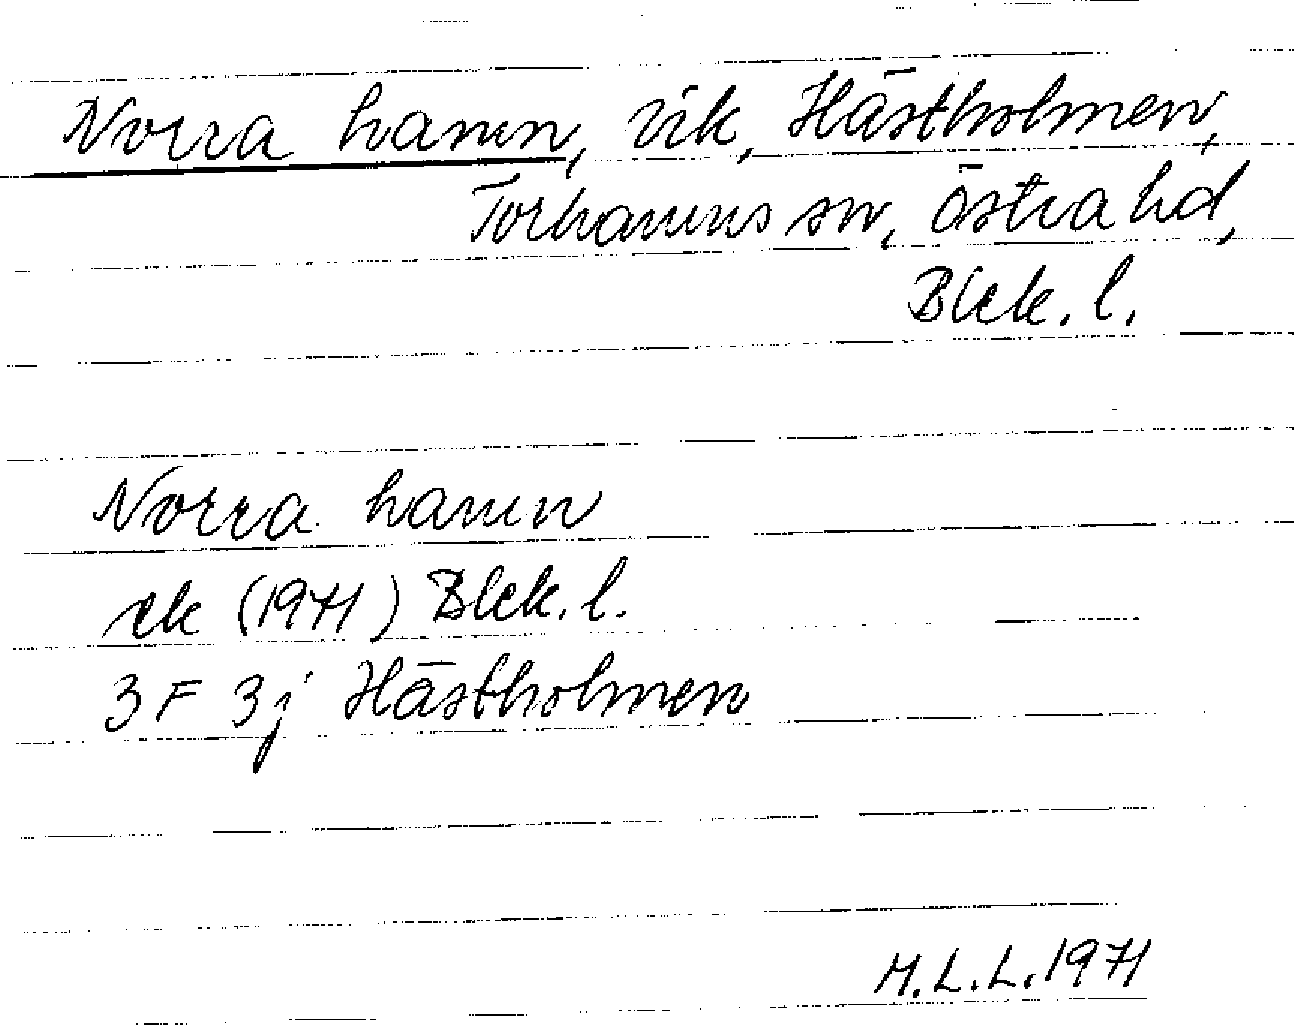 Norra hamn, vik, Hästholmen,
Torhamns sn, Östra hd,
Blek. l.
Norra hamn
ek (1971) Blek. l.
3 F 3j Hästholmen
M.L.L. 1971